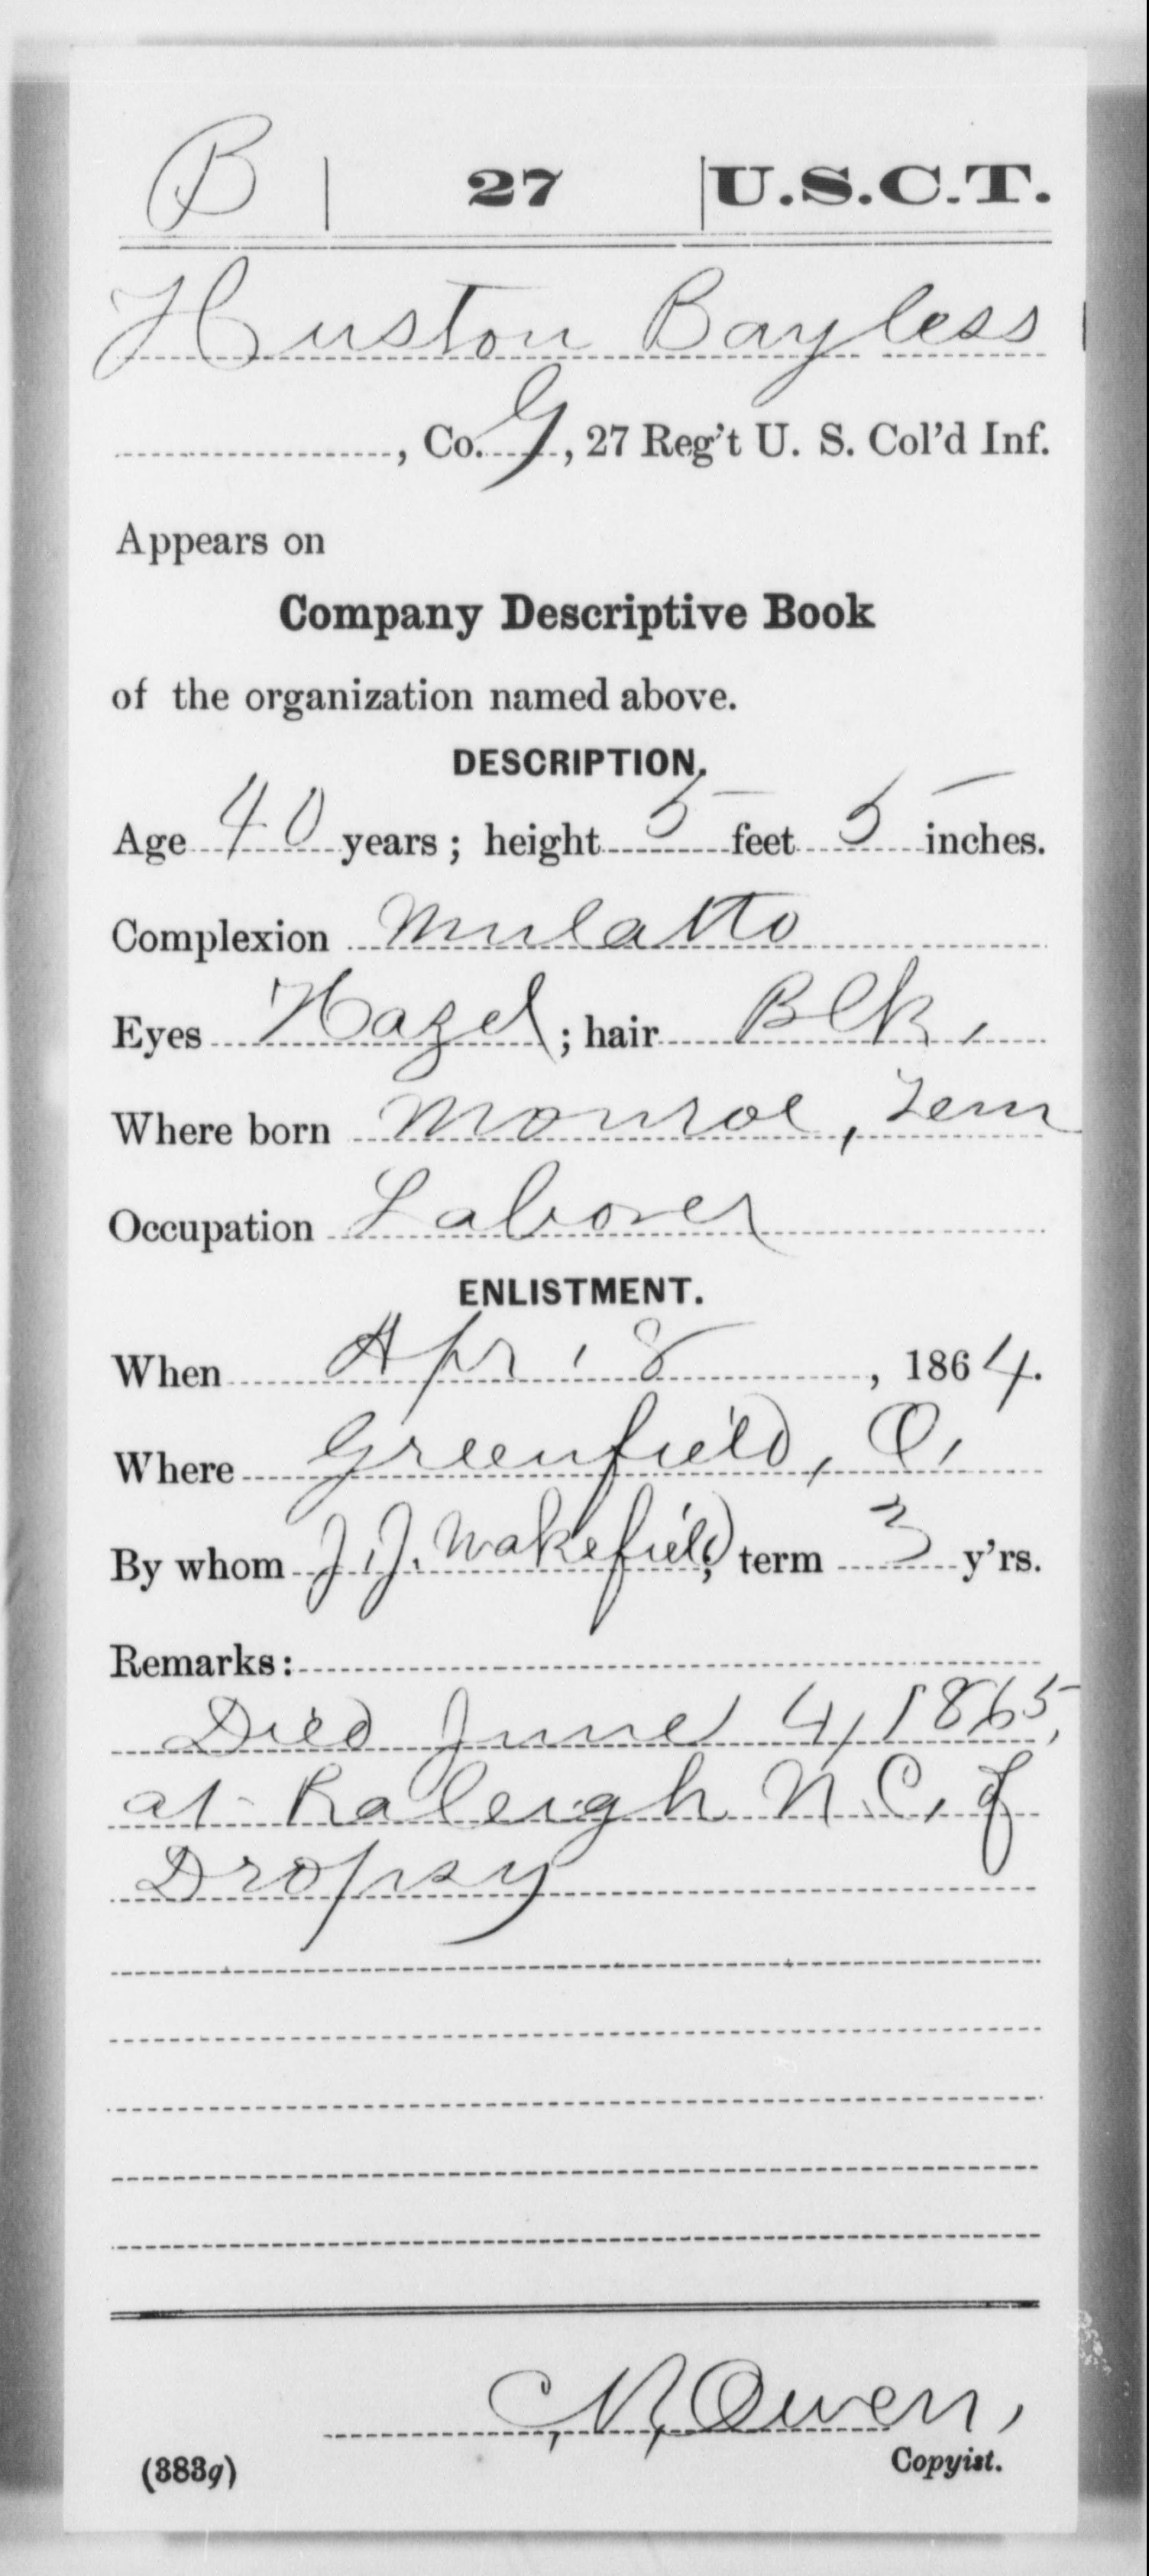 B | 27 | U.S.C.T.
Huston Bayless
, Co. G, 27 Reg't U. S. Col'd Inf.
Appears on
Company Descriptive Book
of the organization named above.
DESCRIPTION.
Age 40 years; height 5 feet 5 inches.
Complexion Mulatto
Eyes Hazel; hair Blk.
Where born Monroe, Tenn
Occupation Laborer
ENLISTMENT.
When Apr. 8, 1864.
Where Greenfield, O.
By whom J. J. Wakefield; term 3 y'rs.
Remarks:
Died June 4, 1865,
at Raleigh N. C. of
Dropsy
Owen,
Copyist.
(383g)